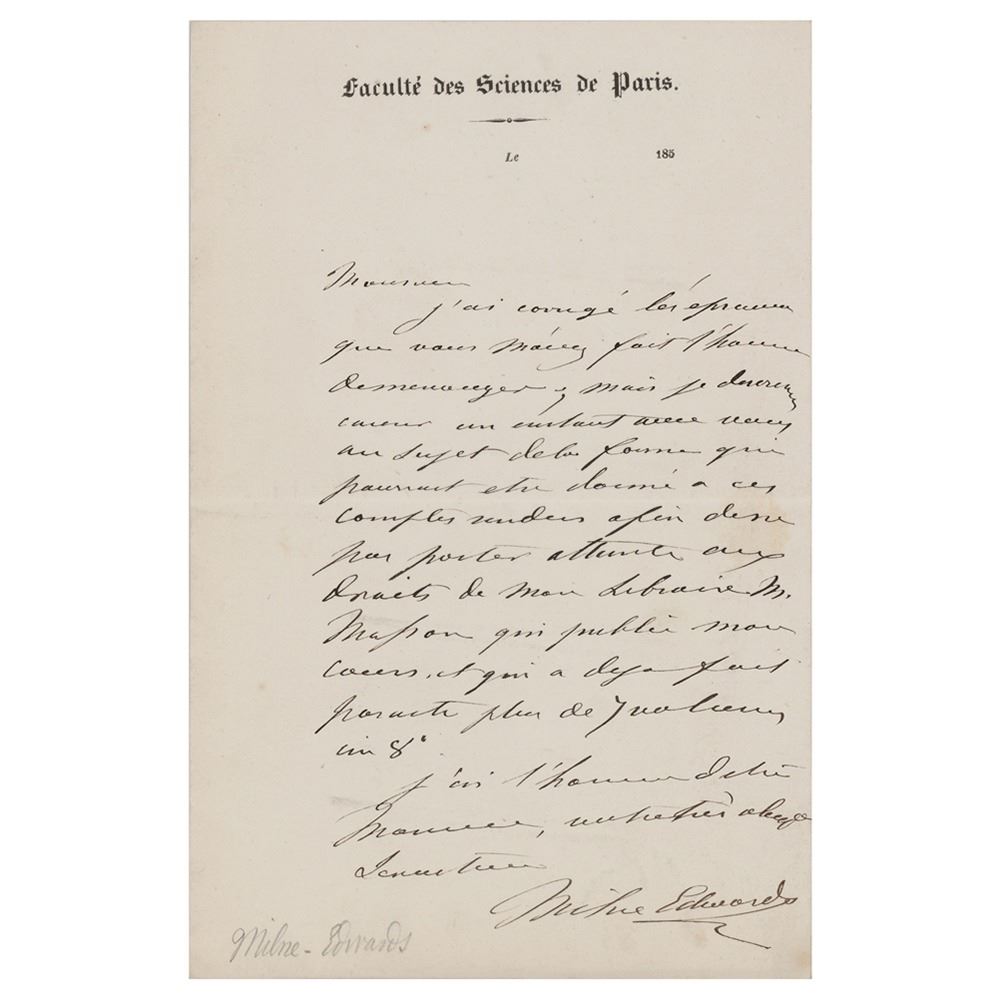 Faculté des Sciences de Paris.
Le 185
Monsieur
j'ai corrigé les épreuves
que vous m'avez fait l'honneur
de m'envoyer ; mais je désirerais
causer un instant avec vous
au sujet de la forme qui
pourrait etre donné a ces
comptes rendus afin de ne
pas porter atteinte aux
droits de mon Libraire M.
Masson qui publie mon
cours, et qui a deja fait
paraitre plus de 7 volumes
in 8°
J'ai l'honneur d'etre
Monsieur, votre très obligé
Serviteur
Milne Edwards
Milne-Edwards